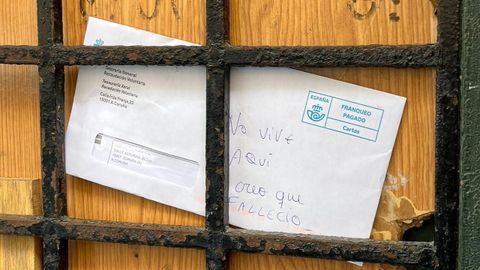 Tesorería General
Recaudación Voluntaria
Tesourería Xeral
Recadación Voluntaria
15001 A Coruña
ESPAÑA
FRANQUEO
PAGADO
Cartas
No vive
AQUÍ
creo que
FALLECIO